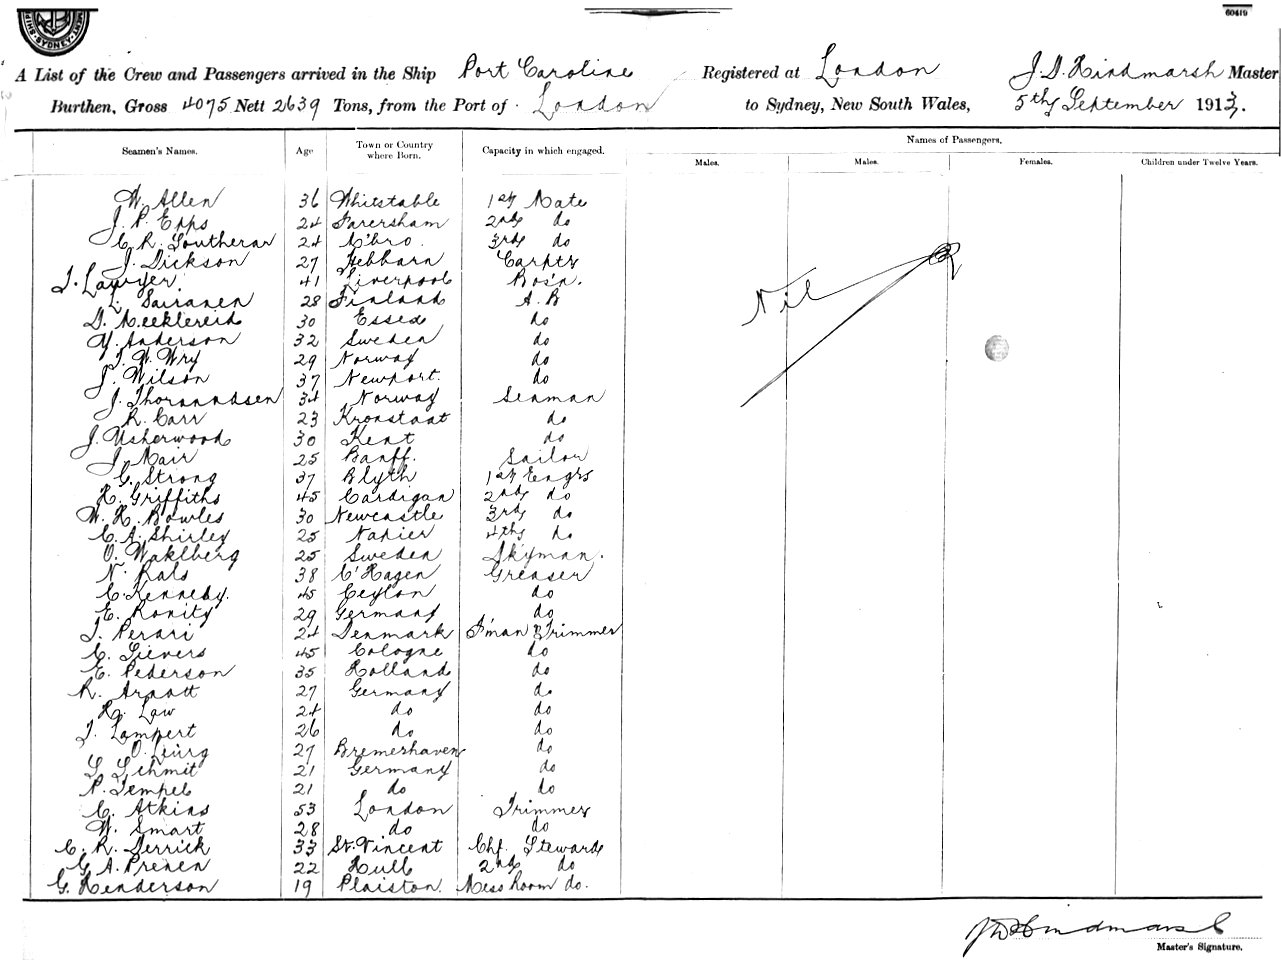 60419
A List of the Crew and Passengers arrived in the Ship Port Caroline Registered at London J.D. Hindmarsh Master
Burthen, Gross 4075 Nett 2639 Tons, from the Port of London to Sydney, New South Wales, 5th September 1913.
Seamen's Names. Age Town or Country where Born. Capacity in which engaged. Names of Passengers.
Males. Males. Females. Children under Twelve Years.
W. Allen 36 Whitstable 1st Mate
J. P. Epps 24 Faversham 2nd do
C. R. Southeran 24 M'bro. 3rd do
J. Dickson 27 Hebburn Carptr
J. Lawyer. 41 Liverpool Bos'n.
L. Sairanen 28 Finland A.B
D. 30 Essex do
Y. Anderson 32 Sweden do
T. W. Wry 29 Norway do
J. Wilson 37 Newport. do
J. 34 Norway Seaman
R. Carr 23 Kronstaat do
J. Usherwood 30 Kent do
J. Mair 25 Banff. Sailor
G. Strong 37 Blyth 1st Engrs
H. Griffiths 45 Cardigan 2nd do
W. H. Bowles 30 Newcastle 3rd do
C. A. Shirley 25 Napier 4th do
O. Wahlberg 25 Sweden Dkyman.
N. Rals 38 C'Hagen Greaser
C. Kennedy. 45 Ceylon do
E. Ronity 29 Germany do
J. Perari 24 Denmark F'man & Trimmer
C. Sievers 45 Cologne do
E. Pederson 35 Holland do
R. 27 Germany do
H. Law 24 do do
J. Lampert 26 do do
O. 27 Bremerhaven do
S Schmit 21 Germany do
P. Tempel 21 do do
C. Atkins 53 London Trimmer
W. Smart 28 do do
C. R. Derrick 33 St. Vincent Chf. Steward
G. A. 22 Hull 2nd do
G. Henderson 19 Plaistow. Mess Room do.
Nil
J D Hindmarsh
Master's Signature.